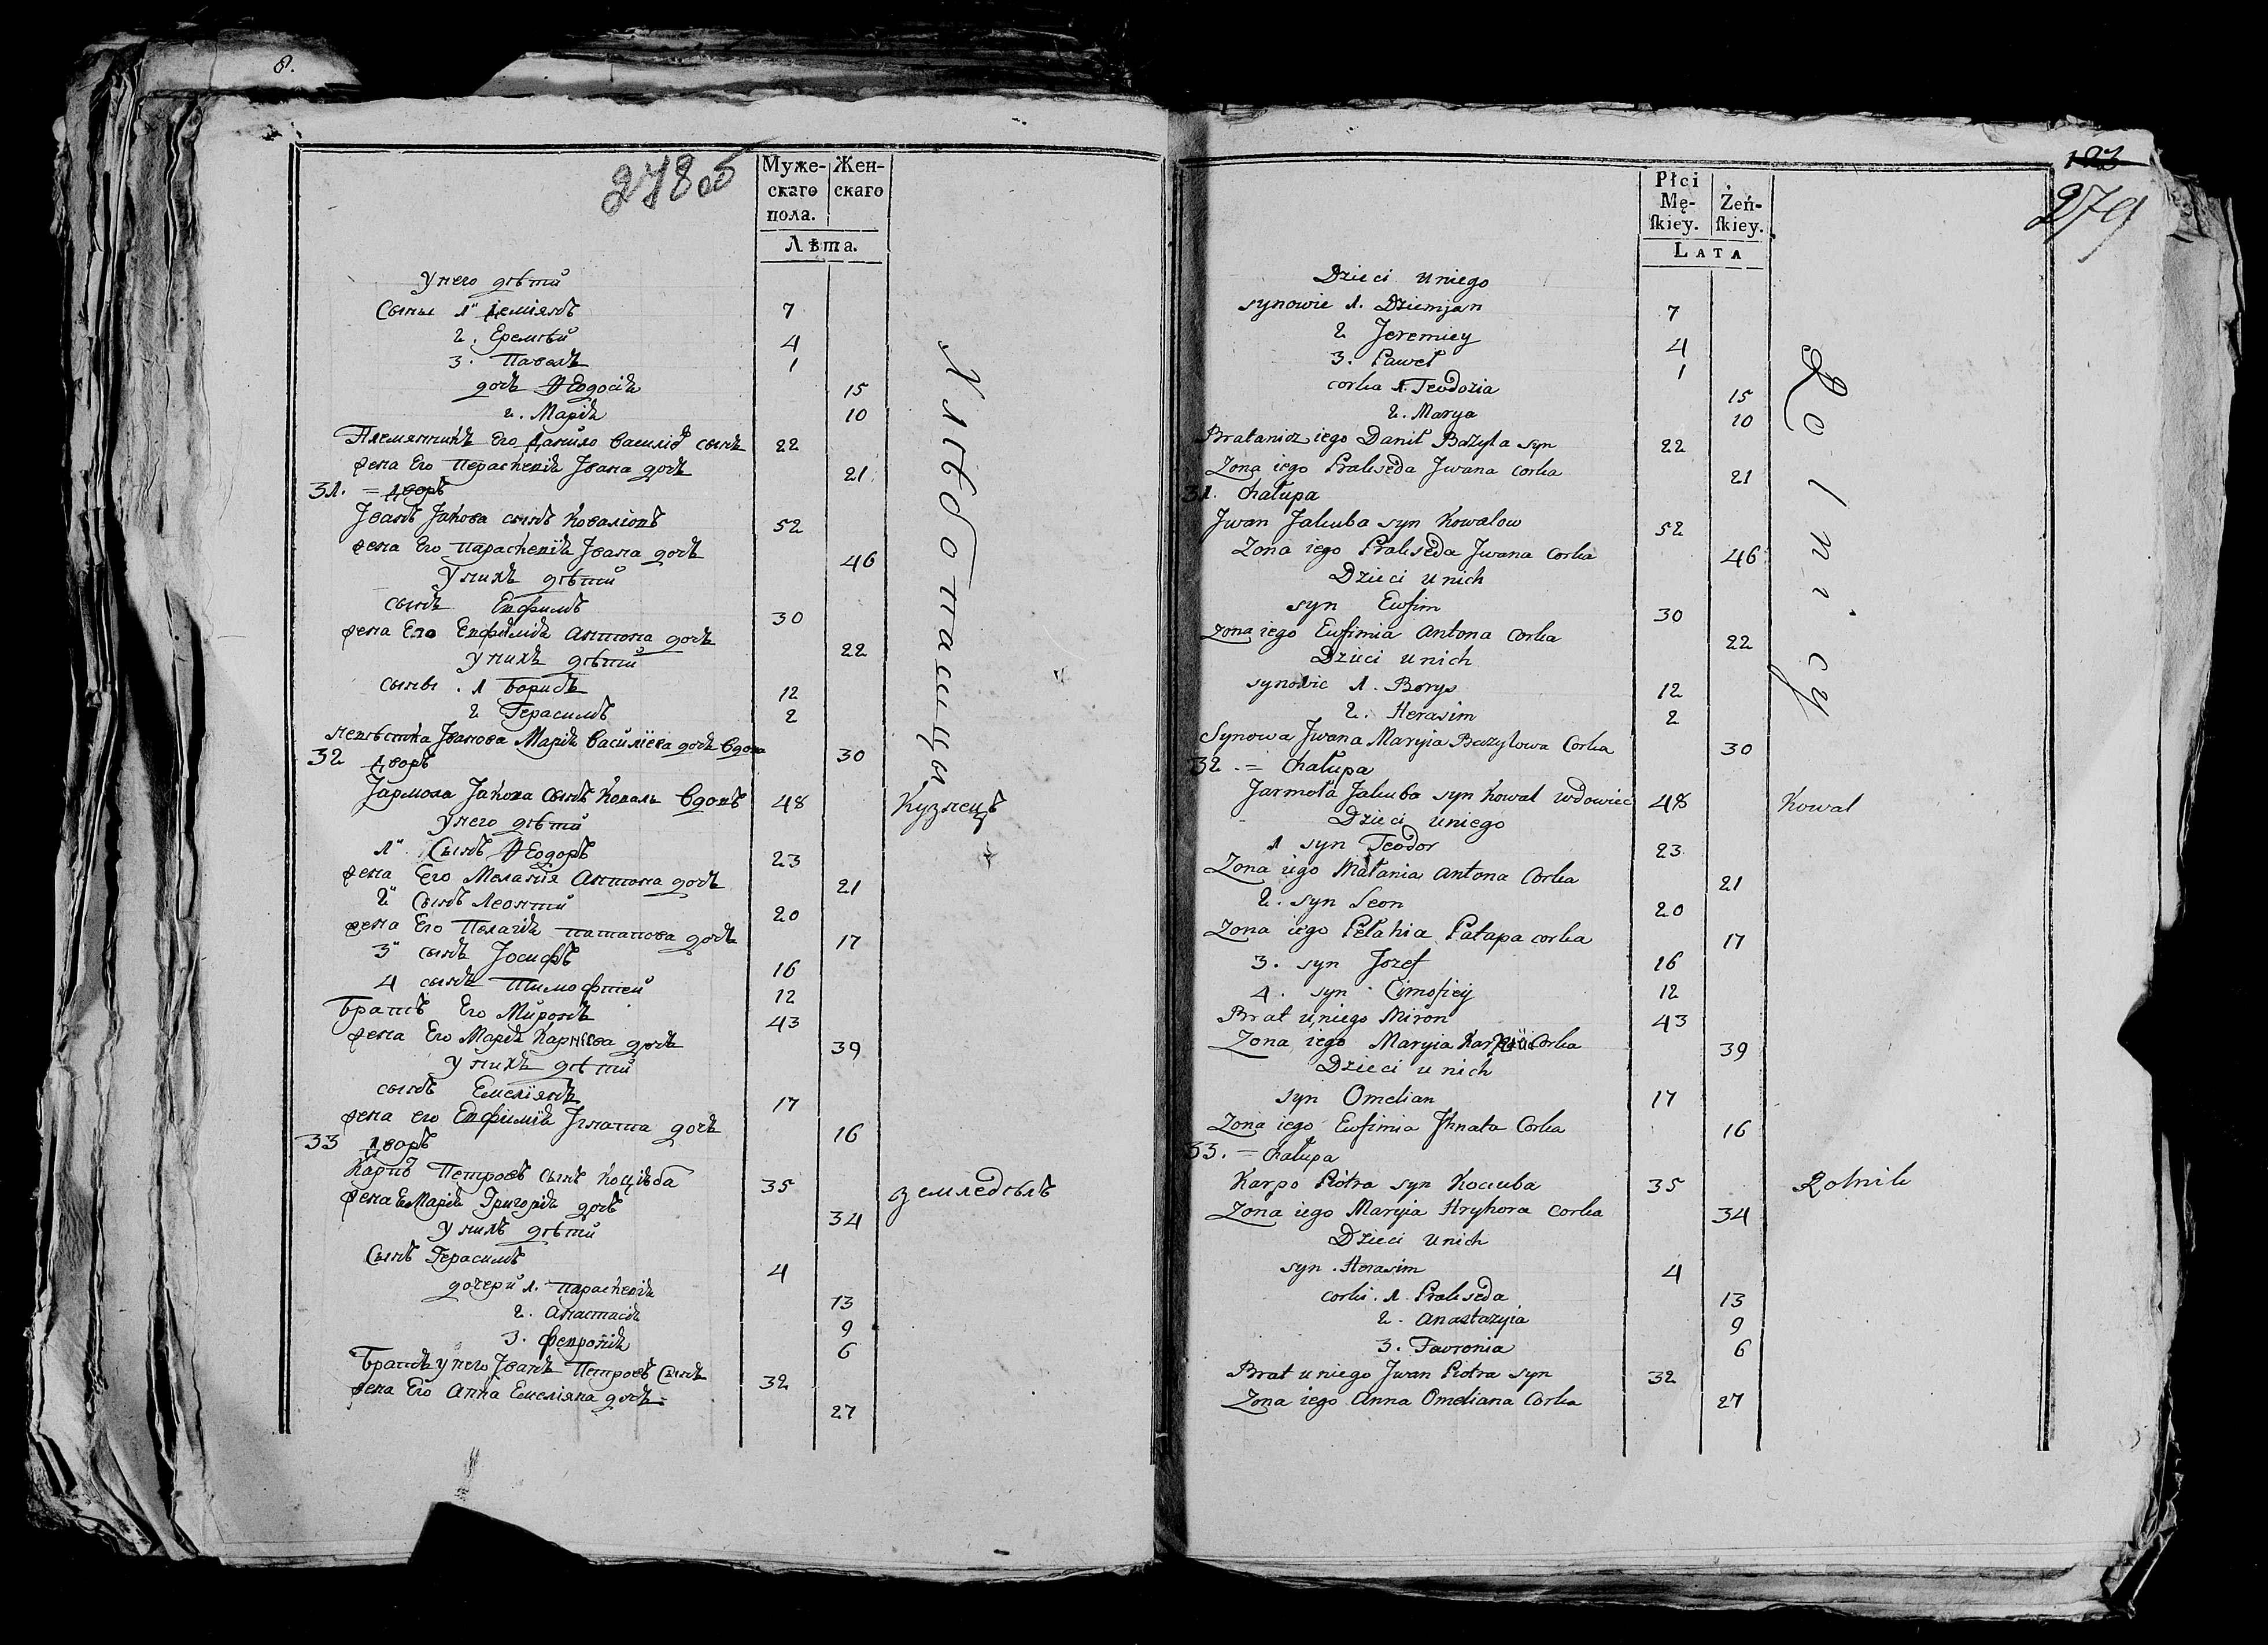 8.
278 об
Муже- Жен-
скаго скаго
пола.
Лѣта.
У него дѣти
Сыны 1" Деміянъ 7
2. Еремѣй 4
3. Павелъ 1
дочь Ѳеодосія 15
2. Марія 10
Племянникъ Его Данило Василіѣ сынъ 22
жена Его Параскевія Івана дочь 21
31. = Дворъ
Іванъ Јакова сынъ Коваліовъ 52
жена Его Параскевія Івана дочь 46
У нихъ дѣти
сынъ Евфимъ 30
жена Его Евфимія Антона дочь 22
У нихъ дѣти
сыны . 1 Борисъ 12
2 Герасимъ 2
невѣстка Іванова Марія Василіева дочь вдова 30
32 Дворъ
Јармола Јакова Сынъ Коваль Вдовъ 48 Кузнецъ
У него дѣти
1" Сынъ Ѳеодоръ 23
жена Его Меланія Антона дочь 21
2" Сынъ Леонтій 20
жена Его Пелагія Патапова дочь 17
3" сынъ Јосифъ 16
4 сынъ Тимофтей 12
Братъ Его Миронъ 43
жена Его Марія Карпѣева дочь 39
У нихъ дѣти
сынъ Емеліянъ 17
жена его Евфимія Ігната дочь 16
33 Дворъ
Карпъ Петровъ Сынъ Коцюба 35 земледѣлъ
жена Ео Марія Григорія дочь 34
У нихъ дѣти
Сынъ Герасимъ 4
дочери 1. Параскевія 13
2. Анастасія 9
3. Февронія 6
Братъ у него Іванъ Петровъ Сынъ 32
жена Его Анна Емеліяна дочь = 27
Хлѣбопашцы
123
279
Płci
Mę- Żeń-
ſkiey. ſkiey.
LATA
Dzieci u niego
synowie 1. Dziemjan 7
2 Jeremiey 4
3. Paweł 1
corka 1. Teodozia 15
2. Marya 10
Bratanicz iego Danił Bazyla syn 22
Zona iego Prakseda Jwana corka 21
31. Chałupa
Jwan Jakuba syn Kowalow 52
Zona iego Prakseda Jwana Corka 46
Dzieci u nich
syn Eufim 30
zona iego Eufimia Antona Corka 22
Dzieci u nich
synowie 1. Borys 12
2. Herasim 2
Synowa Jwana Maryia Bazylowa Corka 30
32 . = Chałupa
Jarmoła Jakuba syn Kowal wdowiec 48 Kowal
Dzieci u niego
1 syn Teodor 23
Zona iego Małania Antona Corka 21
2. syn Leon 20
Zona iego Pełahia Patapa corka 17
3. syn Jozef 16
4. syn Cimofiey 12
Brat u niego Miron 43
Zona iego Maryia Corka 39
Dzieci u nich
syn Omelian 17
Zona iego Eufimia Jhnata Corka 16
33. = Chałupa
Karpo Piotra syn Kociuba 35 Rolnik
Zona iego Maryia Hryhora corka 34
Dzieci u nich
syn . Herasim 4
corki . 1. Prakseda 13
2. Anastazyia 9
3. Fawronia 6
Brat u niego Jwan Piotra syn 32
Zona iego Anna Omeliana Corka 27
Rolnicy